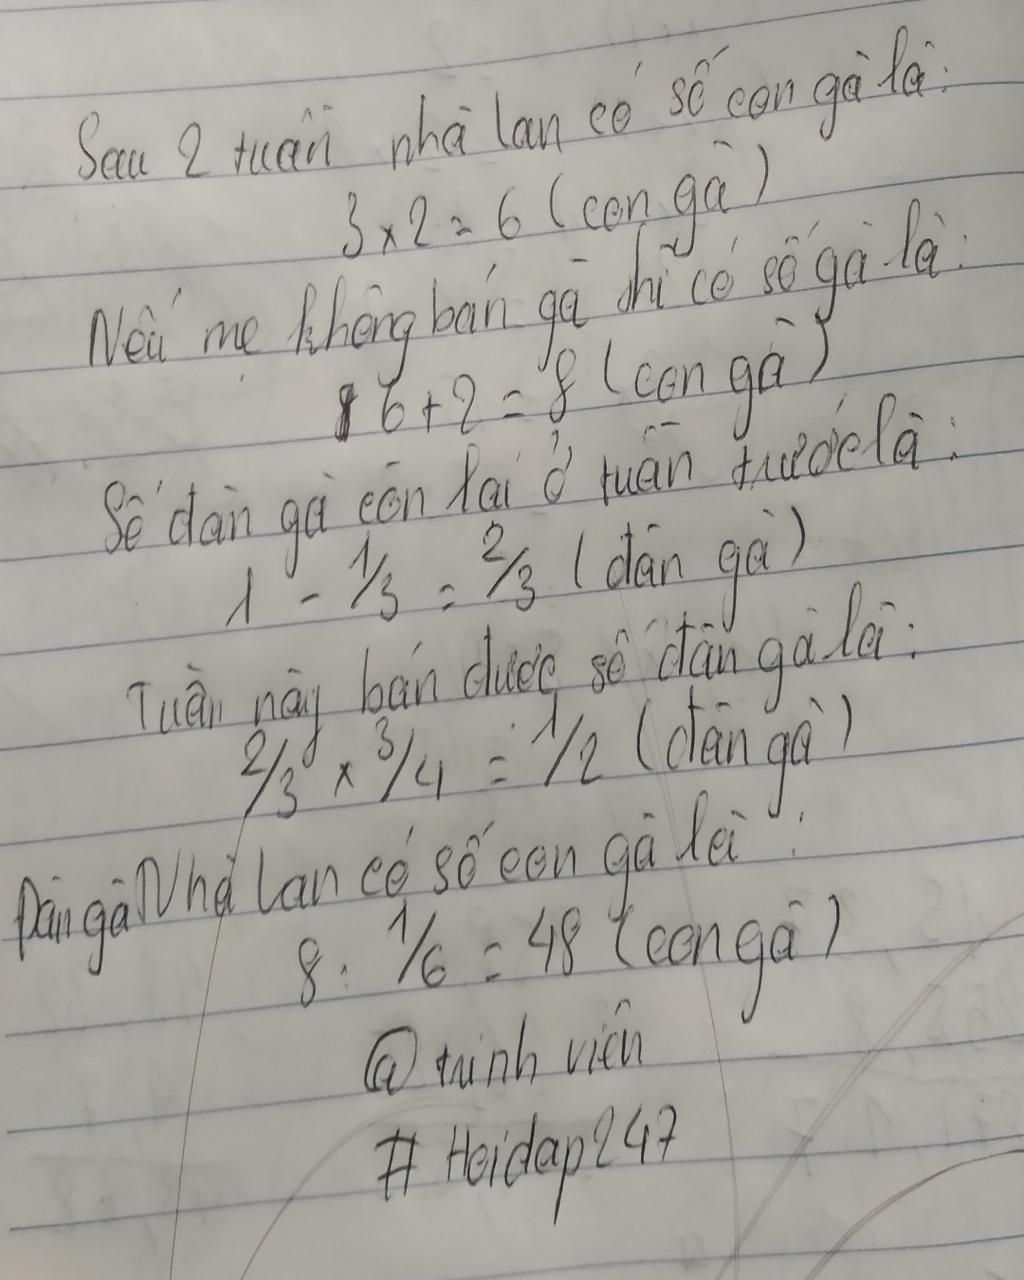 Sau 2 tuần nhà lan có số con gà là:
3 x 2 = 6 (con gà)
Nếu mẹ không bán gà thì có số gà là:
6 + 2 = 8 (con gà)
Số đàn gà còn lại ở tuần trước là:
1 - 1/3 = 2/3 (đàn gà)
Tuần này bán được số đàn gà là:
2/3 x 3/4 = 1/2 (đàn gà)
Đàn gà Nhà Lan có số con gà là:
8 : 1/6 = 48 (con gà)
@ trinh viên
# Hoidap247